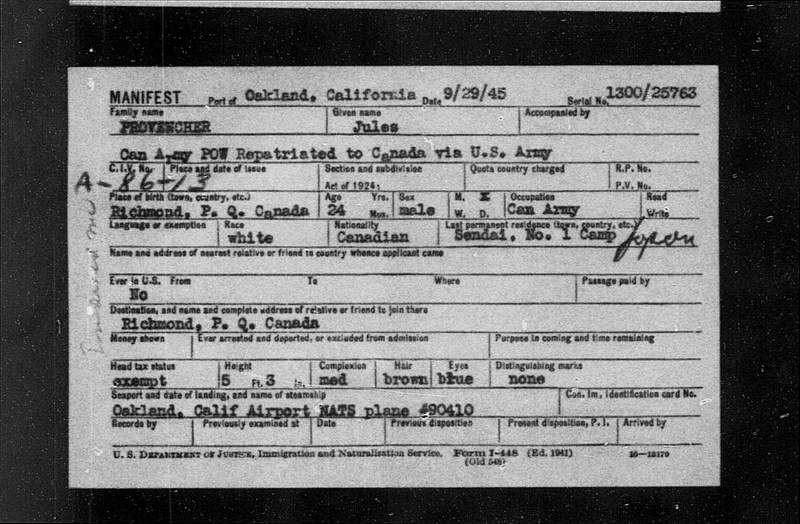 MANIFEST Port of Oakland, California Date 9/29/45 Serial No. 1300/25763
Family name Given name Accompanied by
PROVENCHER Jules
Can Army POW Repatriated to Canada via U.S. Army
C.I.V. No. Place and date of issue Section and subdivision Quota country charged R.P. No.
A-86-13 Act of 1924: P.V. No.
Place of birth (town, country, etc.) Age Yrs. Sex M. X Occupation Read
Richmond, P. Q. Canada 24 Mos. male W. D. Can Army Write
Language or exemption Race Nationality Last permanent residence (town, country, etc.)
white Canadian Sendai, No. 1 Camp Japan
Name and address of nearest relative or friend in country whence applicant came
Ever in U.S. From To Where Passage paid by
No
Destination, and name and complete address of relative or friend to join there
Richmond, P. Q. Canada
Money shown Ever arrested and deported, or excluded from admission Purpose in coming and time remaining
Head tax status Height Complexion Hair Eyes Distinguishing marks
exempt 5 Ft. 3 In. med brown blue none
Seaport and date of landing, and name of steamship Con. Im. Identification card No.
Oakland, Calif Airport NATS plane #90410
Records by Previously examined at Date Previous disposition Present disposition, P.I. Arrived by
U. S. DEPARTMENT OF JUSTICE, Immigration and Naturalization Service. Form I-448 (Ed. 1941) 16-13179
(Old 548)